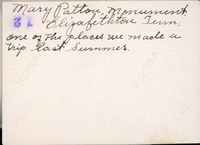 Mary Patton, Monument
Elizabethton Tenn.
12
one of the places we made a
trip last Summer.